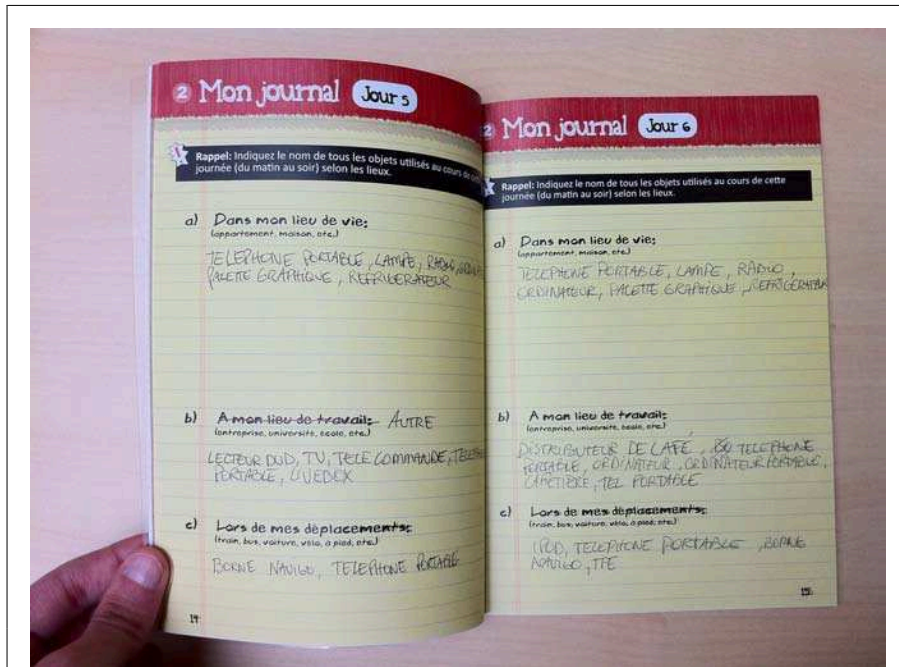 2 Mon journal Jour 5
Rappel: Indiquez le nom de tous les objets utilisés au cours de cette
journée (du matin au soir) selon les lieux.
a) Dans mon lieu de vie:
(appartement, maison, etc.)
TELEPHONE PORTABLE, LAMPE, RADIO,
PALETTE GRAPHIQUE, REFRIGERATEUR
b) A mon lieu de travail: AUTRE
(entreprise, université, école, etc.)
LECTEUR DVD, TV, TELECOMMANDE,
PORTABLE,
c) Lors de mes déplacements:
(train, bus, voiture, vélo, à pied, etc.)
BORNE NAVIGO, TELEPHONE PORTABLE
14
2 Mon journal Jour 6
Rappel: Indiquez le nom de tous les objets utilisés au cours de cette
journée (du matin au soir) selon les lieux.
a) Dans mon lieu de vie:
(appartement, maison, etc.)
TELEPHONE PORTABLE, LAMPE, RADIO,
ORDINATEUR, PALETTE GRAPHIQUE, REFRIGERATEUR
b) A mon lieu de travail:
(entreprise, université, école, etc.)
DISTRIBUTEUR DE CAFE, TELEPHONE
PORTABLE, ORDINATEUR, ORDINATEUR PORTABLE,
CAFETIERE, TEL PORTABLE
c) Lors de mes déplacements:
(train, bus, voiture, vélo, à pied, etc.)
IPOD, TELEPHONE PORTABLE, BORNE
NAVIGO,
15